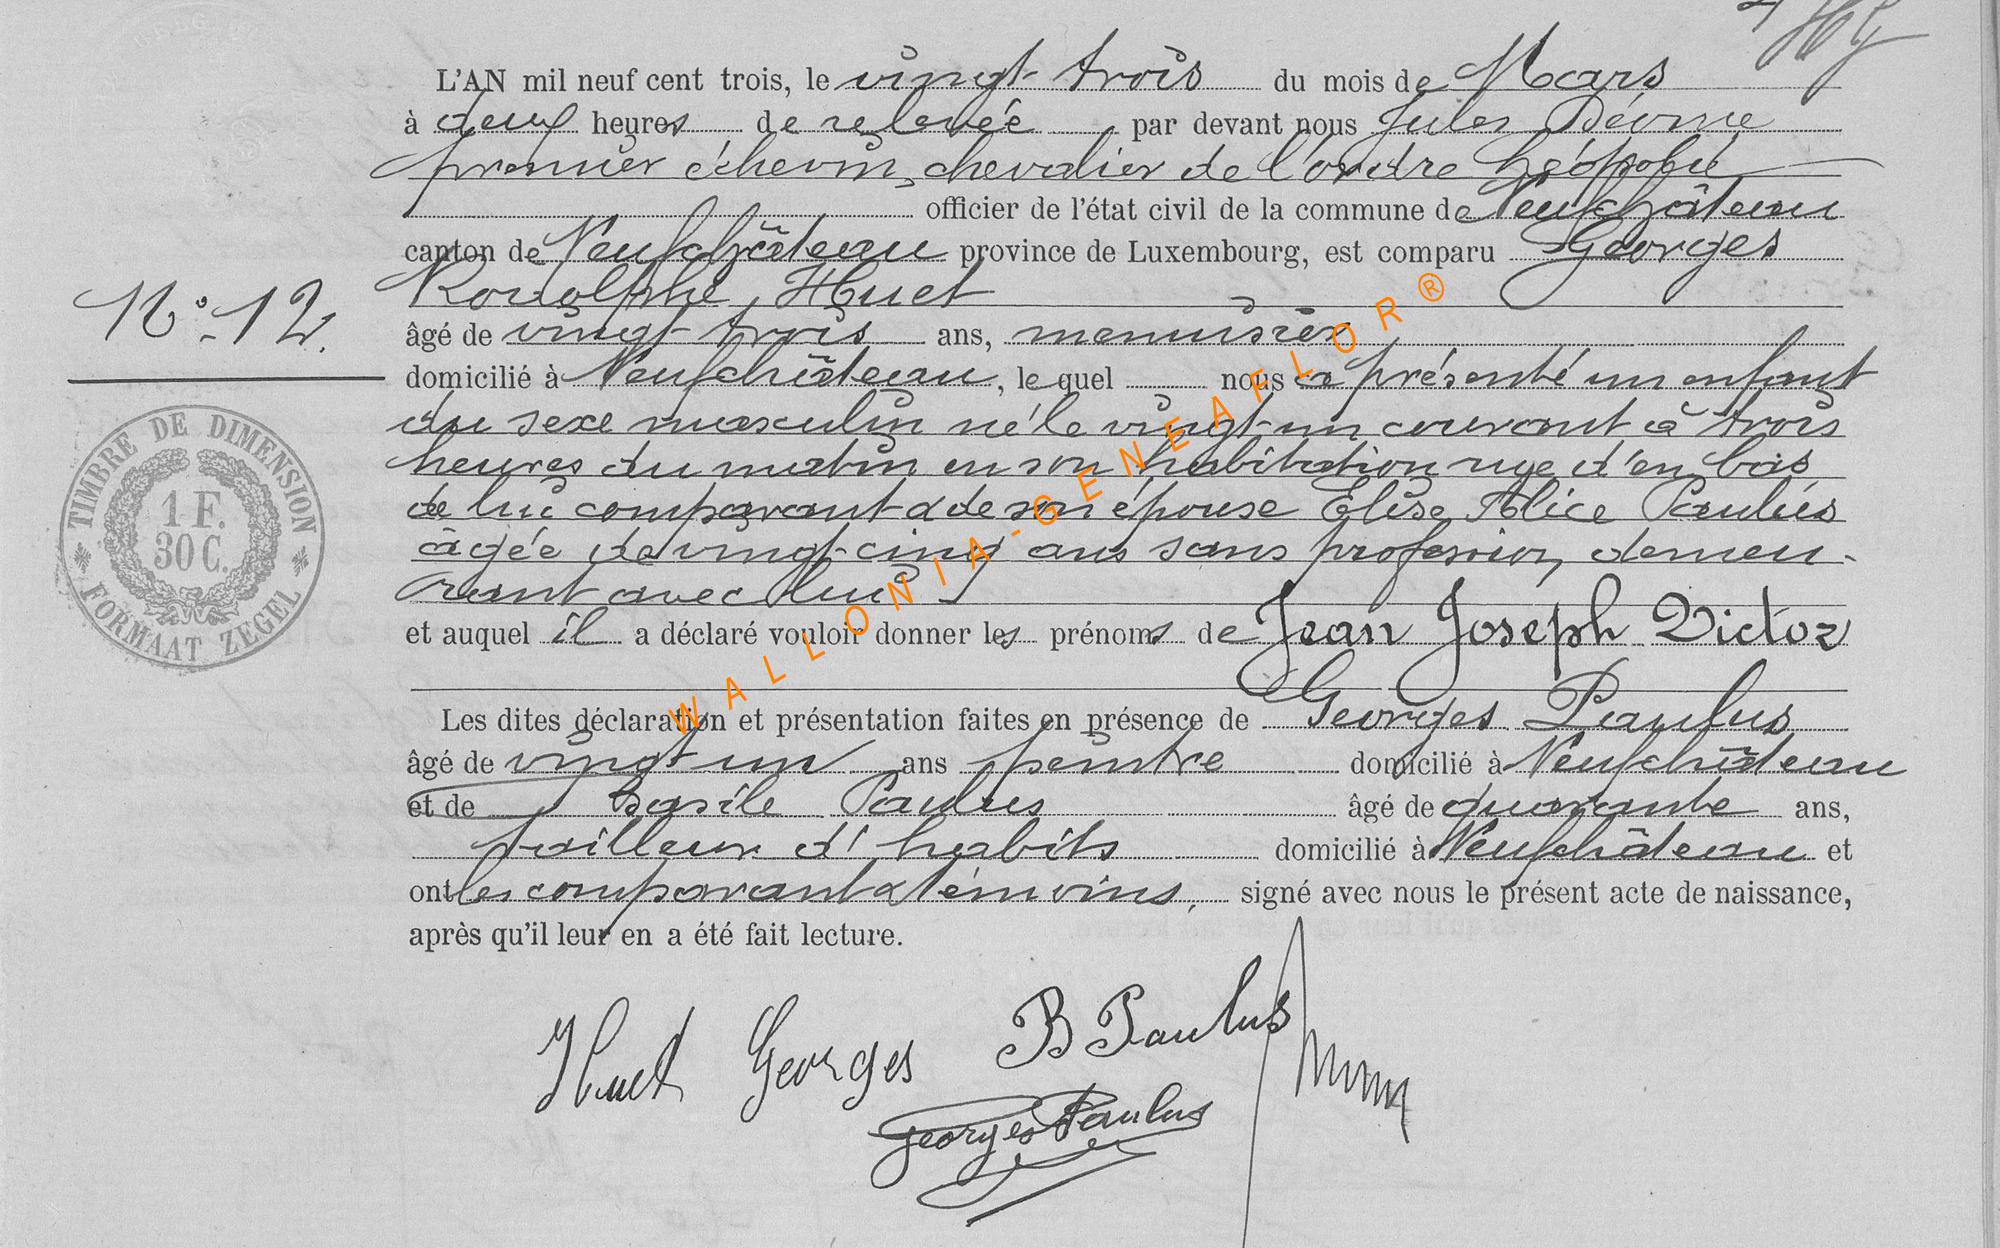 L'AN mil neuf cent trois, le vingt-trois du mois de Mars
à deux heures de relevée par devant nous Jules
premier échevin, chevalier de l'ordre Léopold
officier de l'état civil de la commune de Neufchâteau
canton de Neufchâteau province de Luxembourg, est comparu Georges
Rodolphe Huet
N° 12.
âgé de vingt-trois ans, menuisier
domicilié à Neufchâteau, lequel nous a présenté un enfant
du sexe masculin né le vingt-un courant à trois
heures du matin en son habitation rue d'en bas
de lui comparant & de son épouse Elise Alice Paulus
âgée de vingt-cinq ans sans profession, demeu-
rant avec lui
et auquel il a déclaré vouloir donner les prénoms de Jean Joseph Victor
Les dites déclaration et présentation faites en présence de Georges Paulus
âgé de vingt-un ans peintre domicilié à Neufchâteau
et de Basile Paulus âgé de quarante ans,
tailleur d'habits domicilié à Neufchâteau et
ont les comparant & témoins, signé avec nous le présent acte de naissance,
après qu'il leur en a été fait lecture.
Huet Georges B Paulus
Georges Paulus
TIMBRE DE DIMENSION
1 F.
30 C.
FORMAAT ZEGEL
WALLONIA-GENEAFLOR®